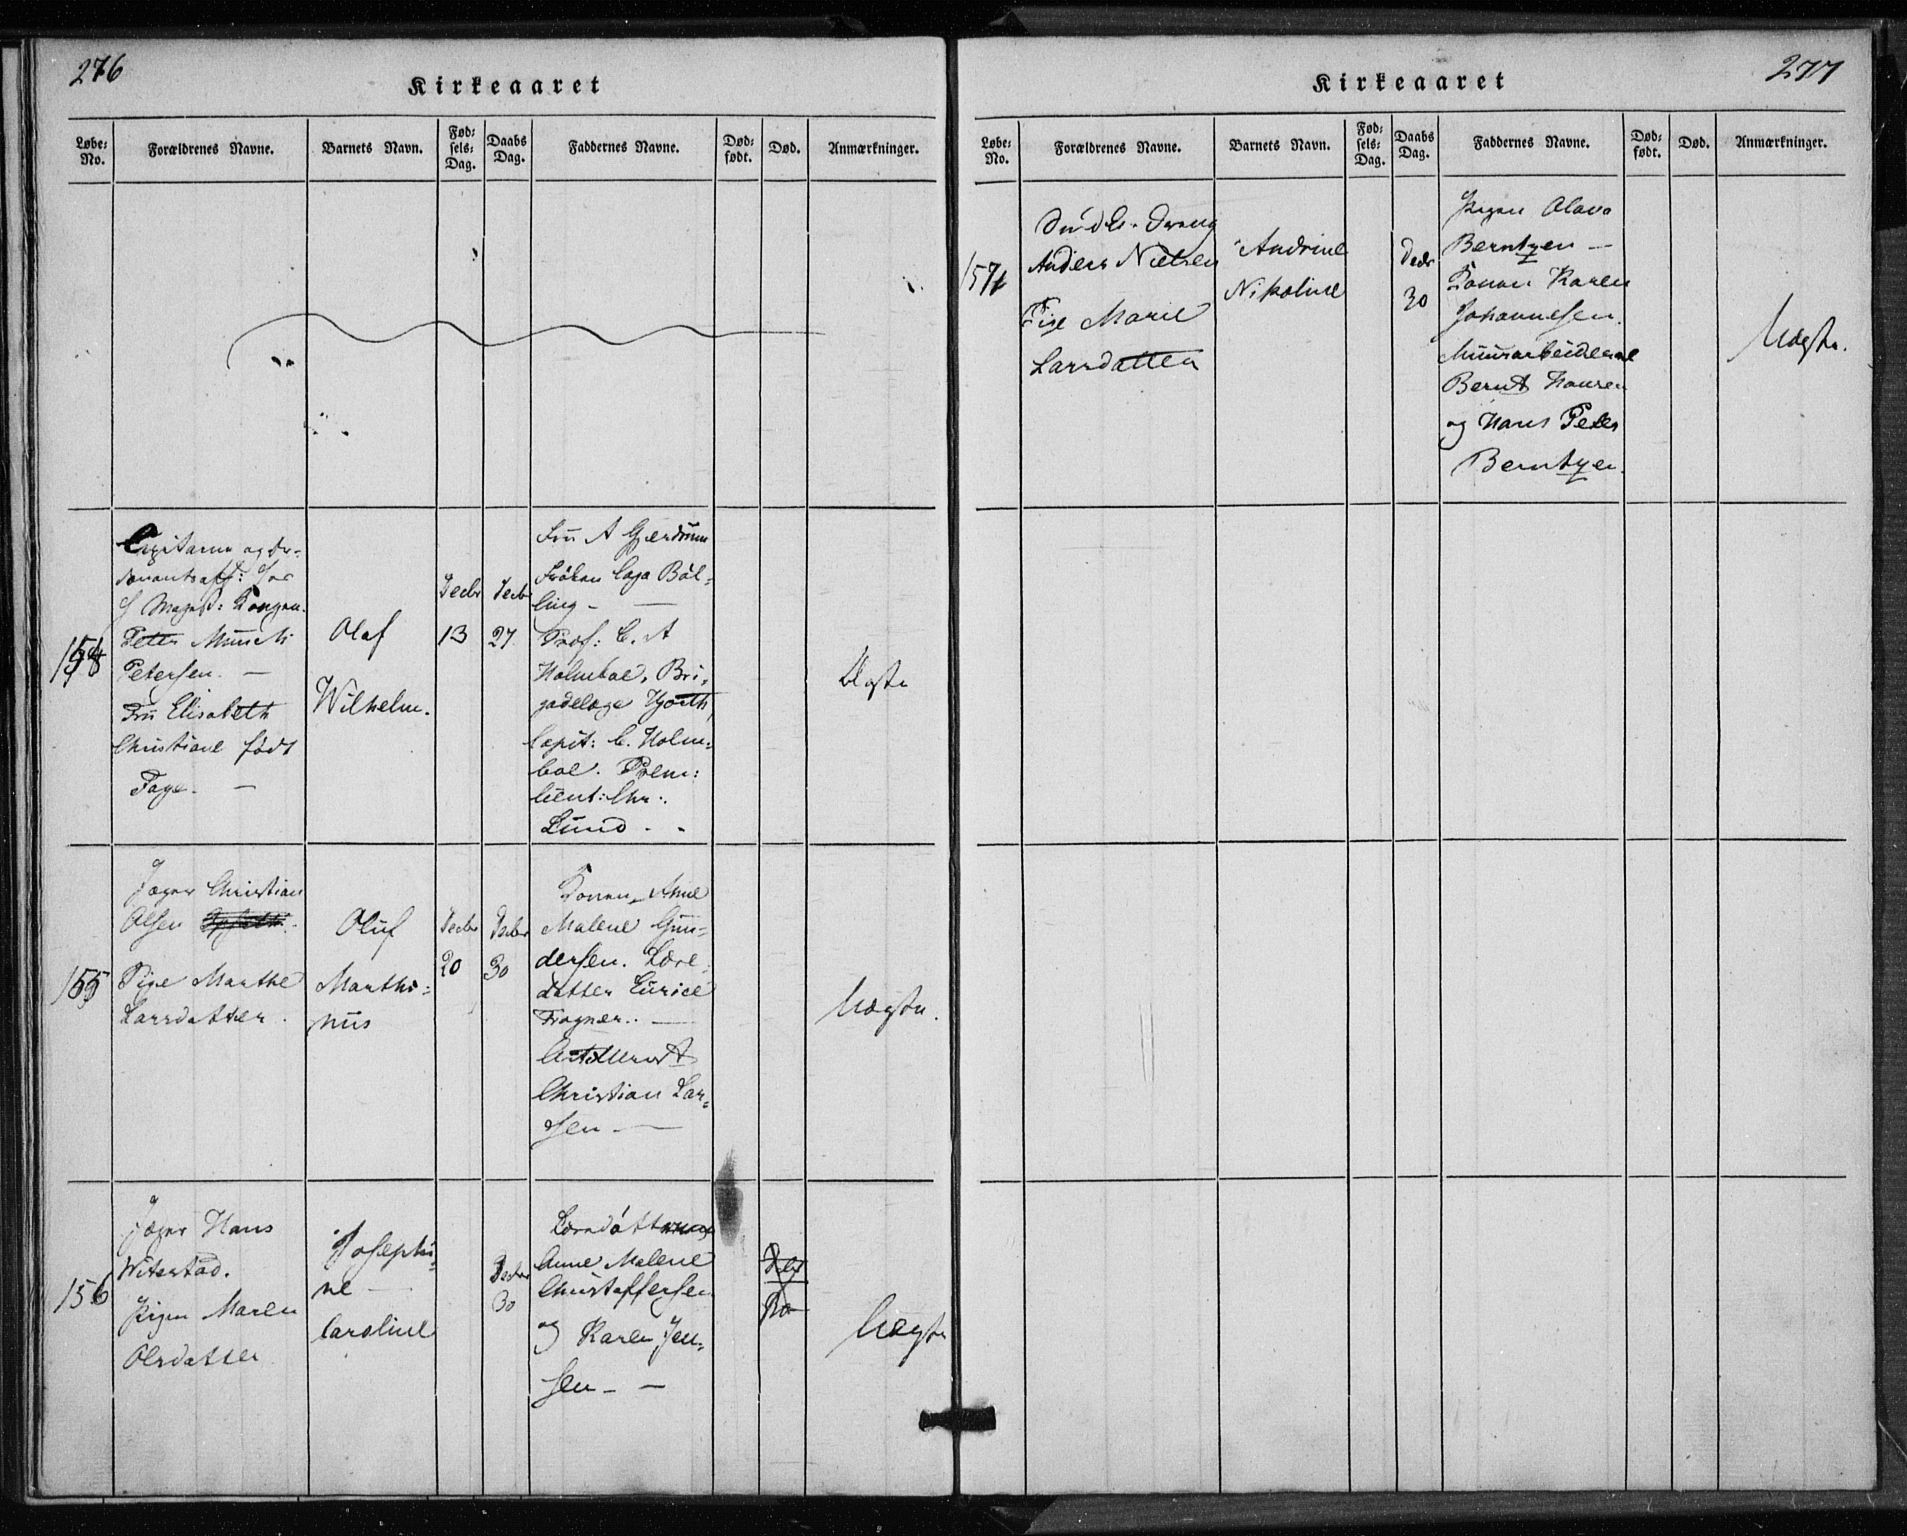 276
Kirkeaaret
Løbe-No. Forældrenes Navne. Barnets Navn. Fødsels-Dag. Daabs Dag. Faddernes Navne. Dødfødt. Død. Anmærkninger.
154
Capitaine og Or-
donantsoff: hos
H Majest: Kongen
Peter Munch
Petersen. —
Fru Elisabeth
Christiane født
Fage. —
Olaf
Wilhelm.
Decbr
13
Decbr
27
Fru A Gjerdrum
Frøken Caja Bøl-
ling — —
Prof: C. A
Holmboe, Bri-
gadelæge Hjorth,
Capit: C. Holm-
boe. Prem:
lieut: Chr.
Lund. -
Uægte
155
Jæger Christian
Olsen
Pige Marthe
Larsdatter.
Oluf
Marthi-
nus
Decbr
20
Decbr
30
Konen Anne
Malene Gun-
dersen. Løre
datter
Fragner. —
Christian Lar-
sen —
Uægte.
156
Jæger Hans
Pigen Maren
Olsdatter
Josephi-
ne —
Caroline
Decbr
30
Anne Malene
Christoffersen
og Karen Jen-
sen — —
Uægte
277
Kirkeaaret
Løbe-No. Forældrenes Navne. Barnets Navn. Fødsels-Dag. Daabs Dag. Faddernes Navne. Dødfødt. Død. Anmærkninger.
157
Anders Nielsen
Pige Marie
Larsdatter
Andrine
Nikoline
Decbr
30
Pigen Olava
Berntzen —
Konen Karen
Johannesen.
Muurarbeiderne
Bernt Hansen
og Hans Peter
Berntzen.
Uægte.